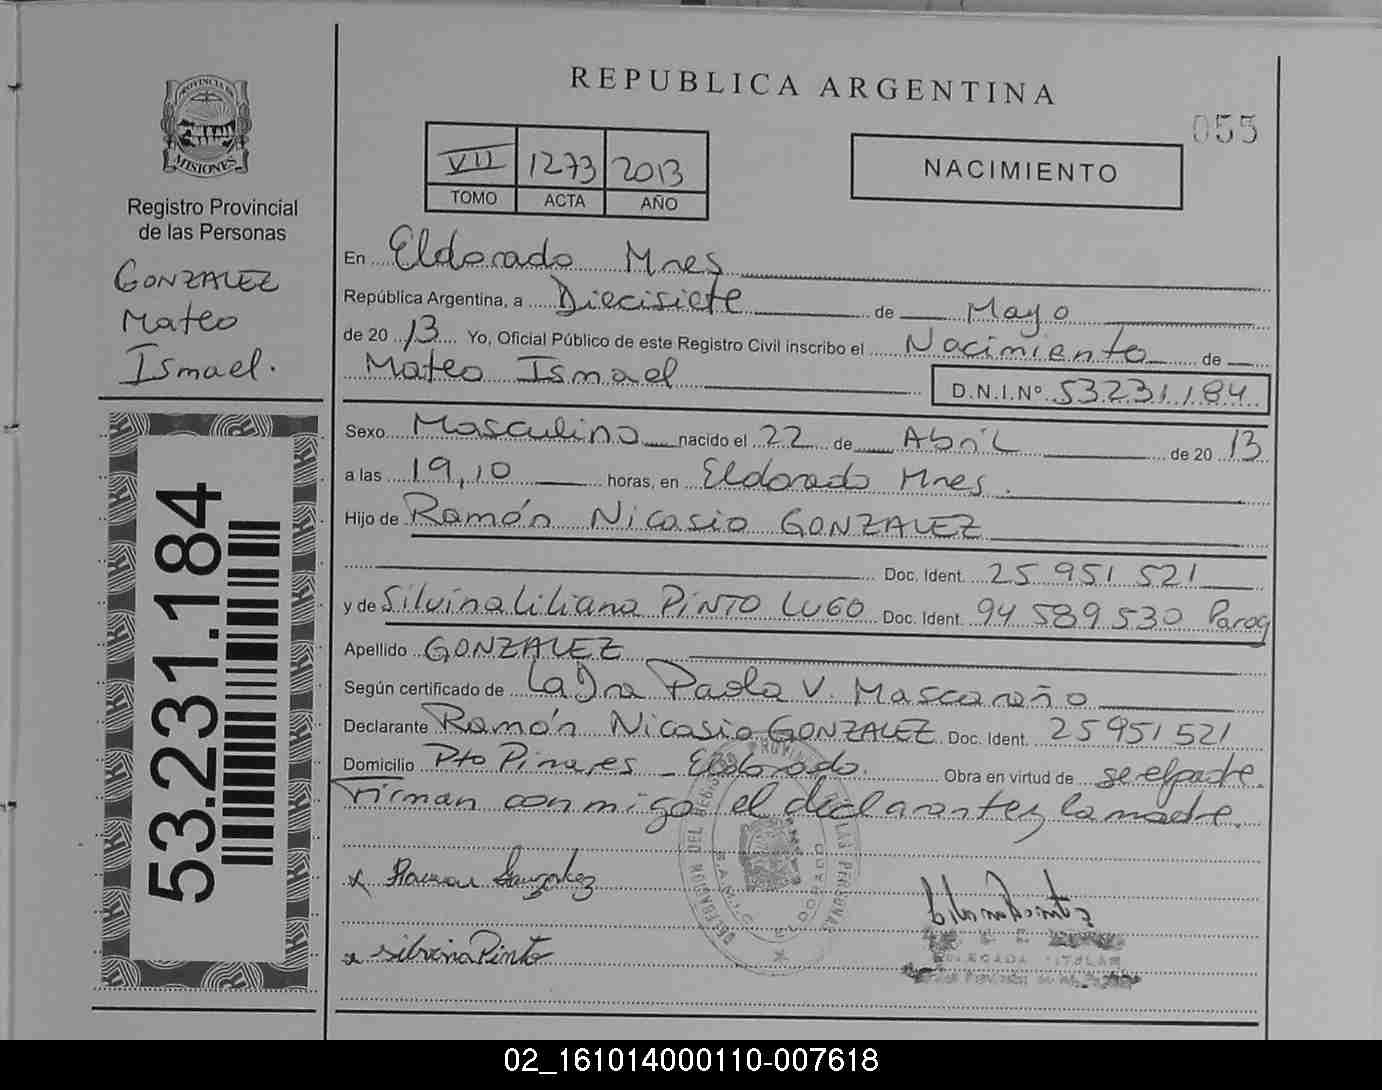 REPUBLICA ARGENTINA
055
PROVINCIA DE
MISIONES
Registro Provincial
de las Personas
GONZALEZ
Mateo
Ismael.
53.231.184
VII 1273 2013
TOMO ACTA AÑO
NACIMIENTO
En Eldorado Mnes
República Argentina, a Diecisiete de Mayo
de 20 13 Yo, Oficial Público de este Registro Civil inscribo el Nacimiento de
Mateo Ismael D.N.I.Nº 53231184
Sexo Masculino nacido el 22 de Abril de 20 13
a las 19,10 horas, en Eldorado Mnes.
Hijo de Ramón Nicasio GONZALEZ
Doc. Ident. 25 951 521
y de Silvina Liliana PINTO LUGO Doc. Ident. 94 589 530 Parag
Apellido GONZALEZ
Según certificado de La Dra Paola V. Mascareño
Declarante Ramón Nicasio GONZALEZ Doc. Ident. 25951521
Domicilio Pto Pinares - Eldorado. Obra en virtud de se el padre.
Firman conmigo el declarante y la madre.
x Ramon Gonzalez
x silvina Pinto
DELEGADA TITULAR
02_161014000110-007618